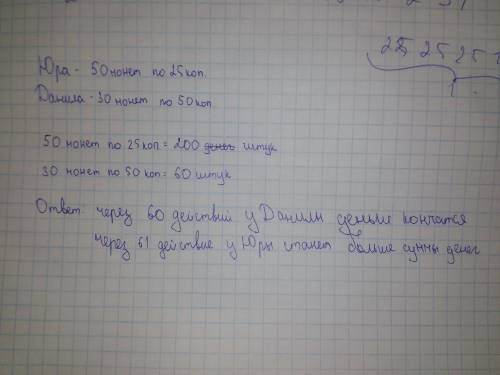 25 25 25
1
Юра - 50 монет по 25 коп.
Данила - 30 монет по 50 коп
50 монет по 25 коп = 200 день штук
30 монет по 50 коп = 60 штук
Ответ: через 60 действий у Данилы деньги кончатся
через 61 действие у Юры станет больше суммы денег